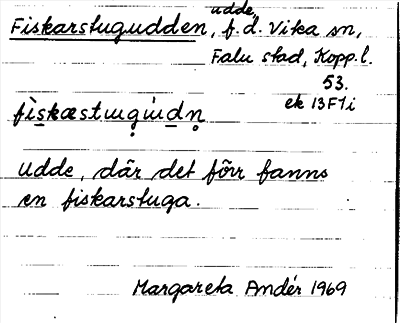 udde,
Fiskarstugudden, f.d. Vika sn,
Falu stad, Kopp.l.
53.
ek 13F7i
fìskæstɯgɯ́dn̥
udde, där det förr fanns
en fiskarstuga.
Margareta Andér 1969